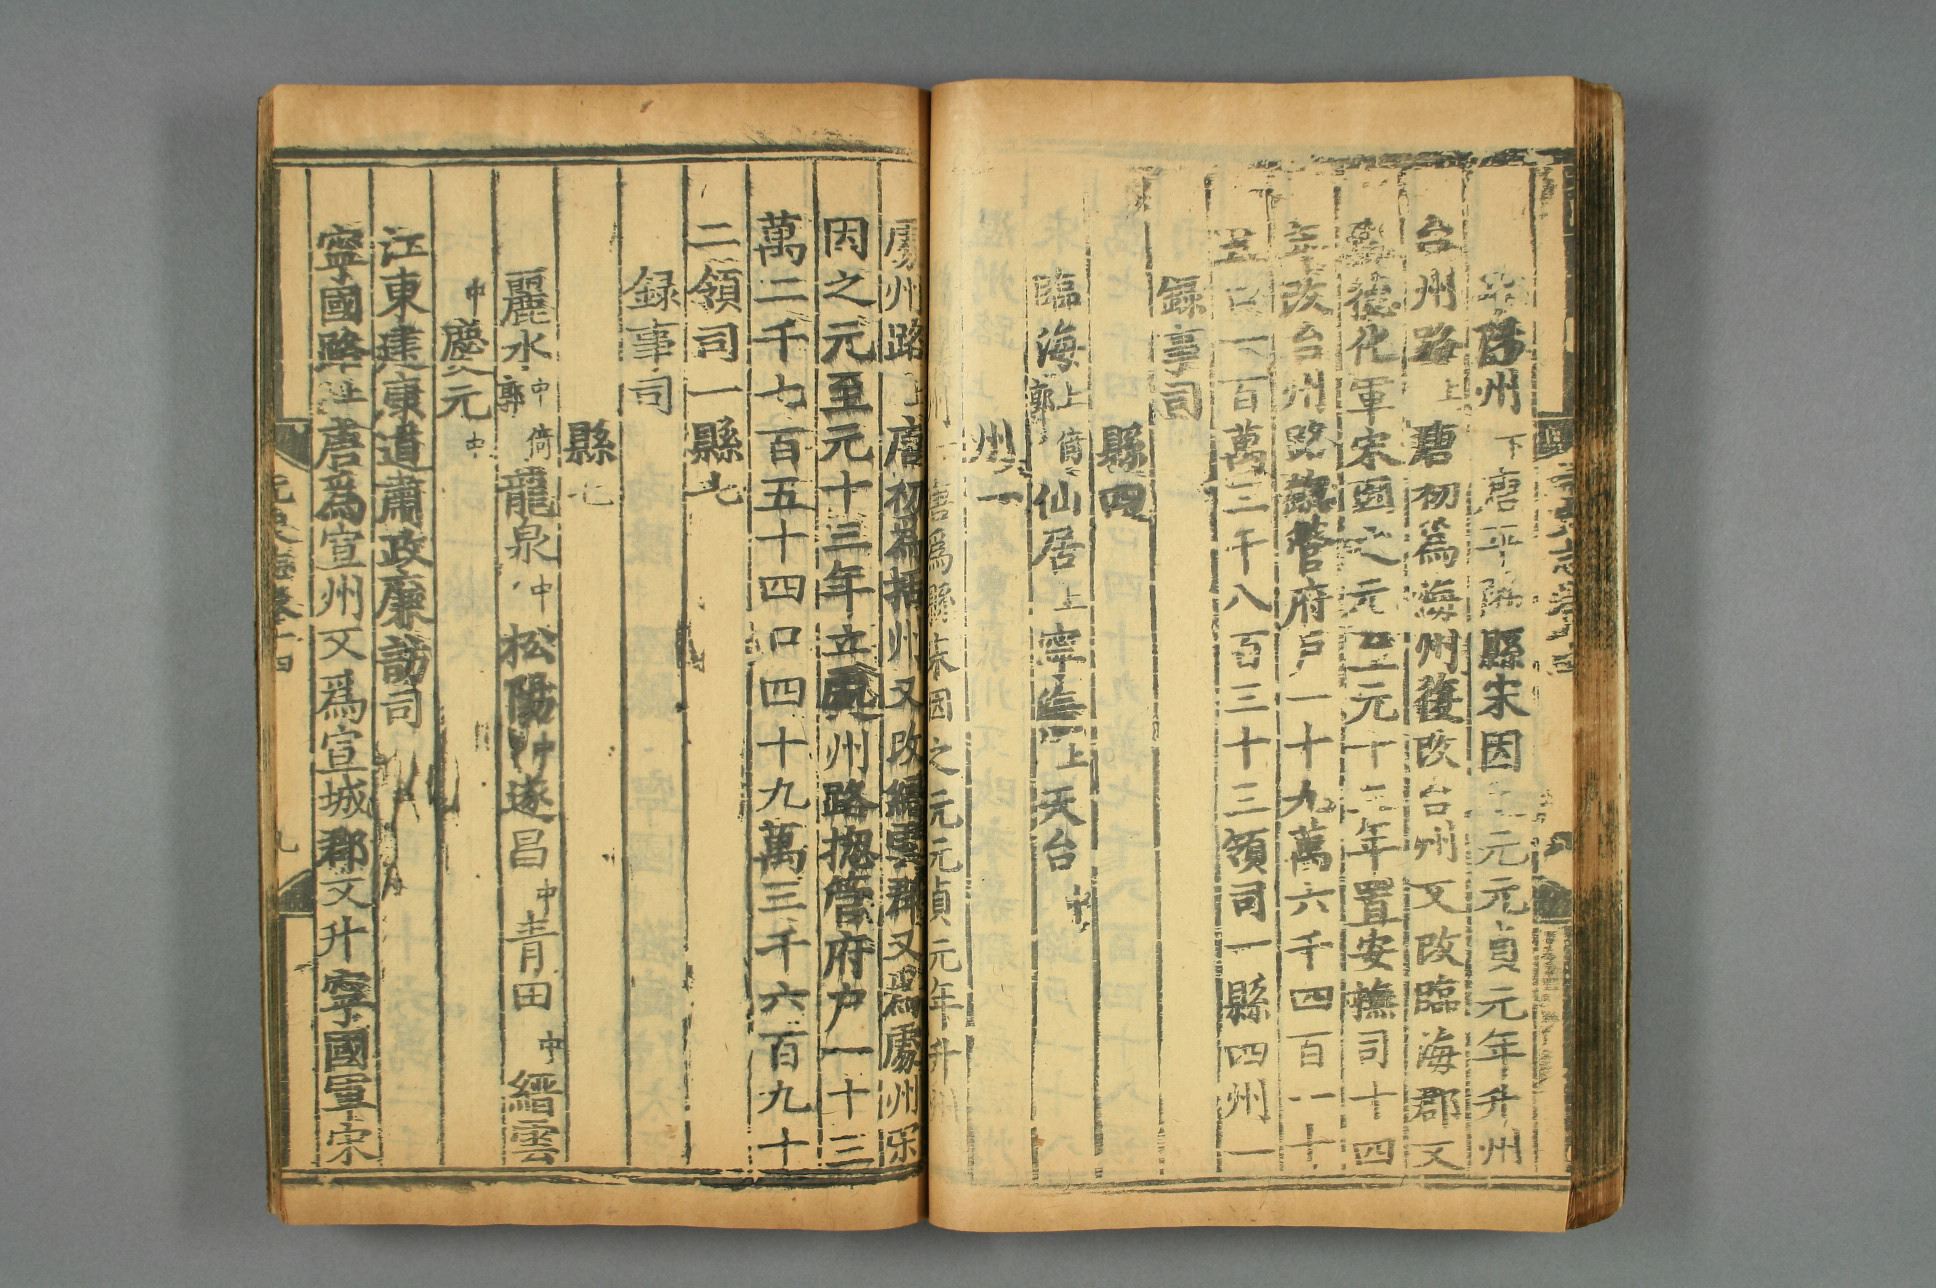 平陽州下唐平陽縣宋因之元元貞元年升州
台州路上唐初爲海州復改台州又改臨海郡又
爲德化軍宋因之元至元十三年置安撫司十四
年改台州路總管府户一十九萬六千四百一十
五口一百萬三千八百三十三領司一縣四州一
録事司
縣四
臨海上倚郭仙居上寧海上天台中
州一
唐爲縣宋因之元元貞元年升州
處州路上唐初爲括州又改縉雲郡又爲處州宋
因之元至元十三年立處州路摠管府户一十三
萬二千七百五十四口四十九萬三千六百九十
二領司一縣七
録事司
縣七
麗水中倚郭龍泉中松陽中遂昌中青田中縉雲
中慶元中
江東建康道肅政廉訪司
寧國路上唐爲宣州又爲宣城郡又升寧國軍宋
元史志卷十四
九